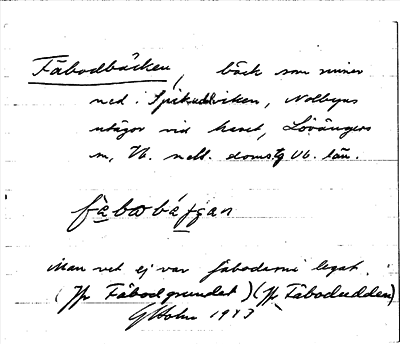 Fäbodbäcken, bäck som rinner
ned i Spikudviken, Nolbyns
utägor vid havet, Lövångers
sn, Vb. n. doms. Vb. län.
Man vet ej var fäbodarna legat.
(Jfr Fäbodgrundet) (Jfr Fäbodudden)
GHolm 1943